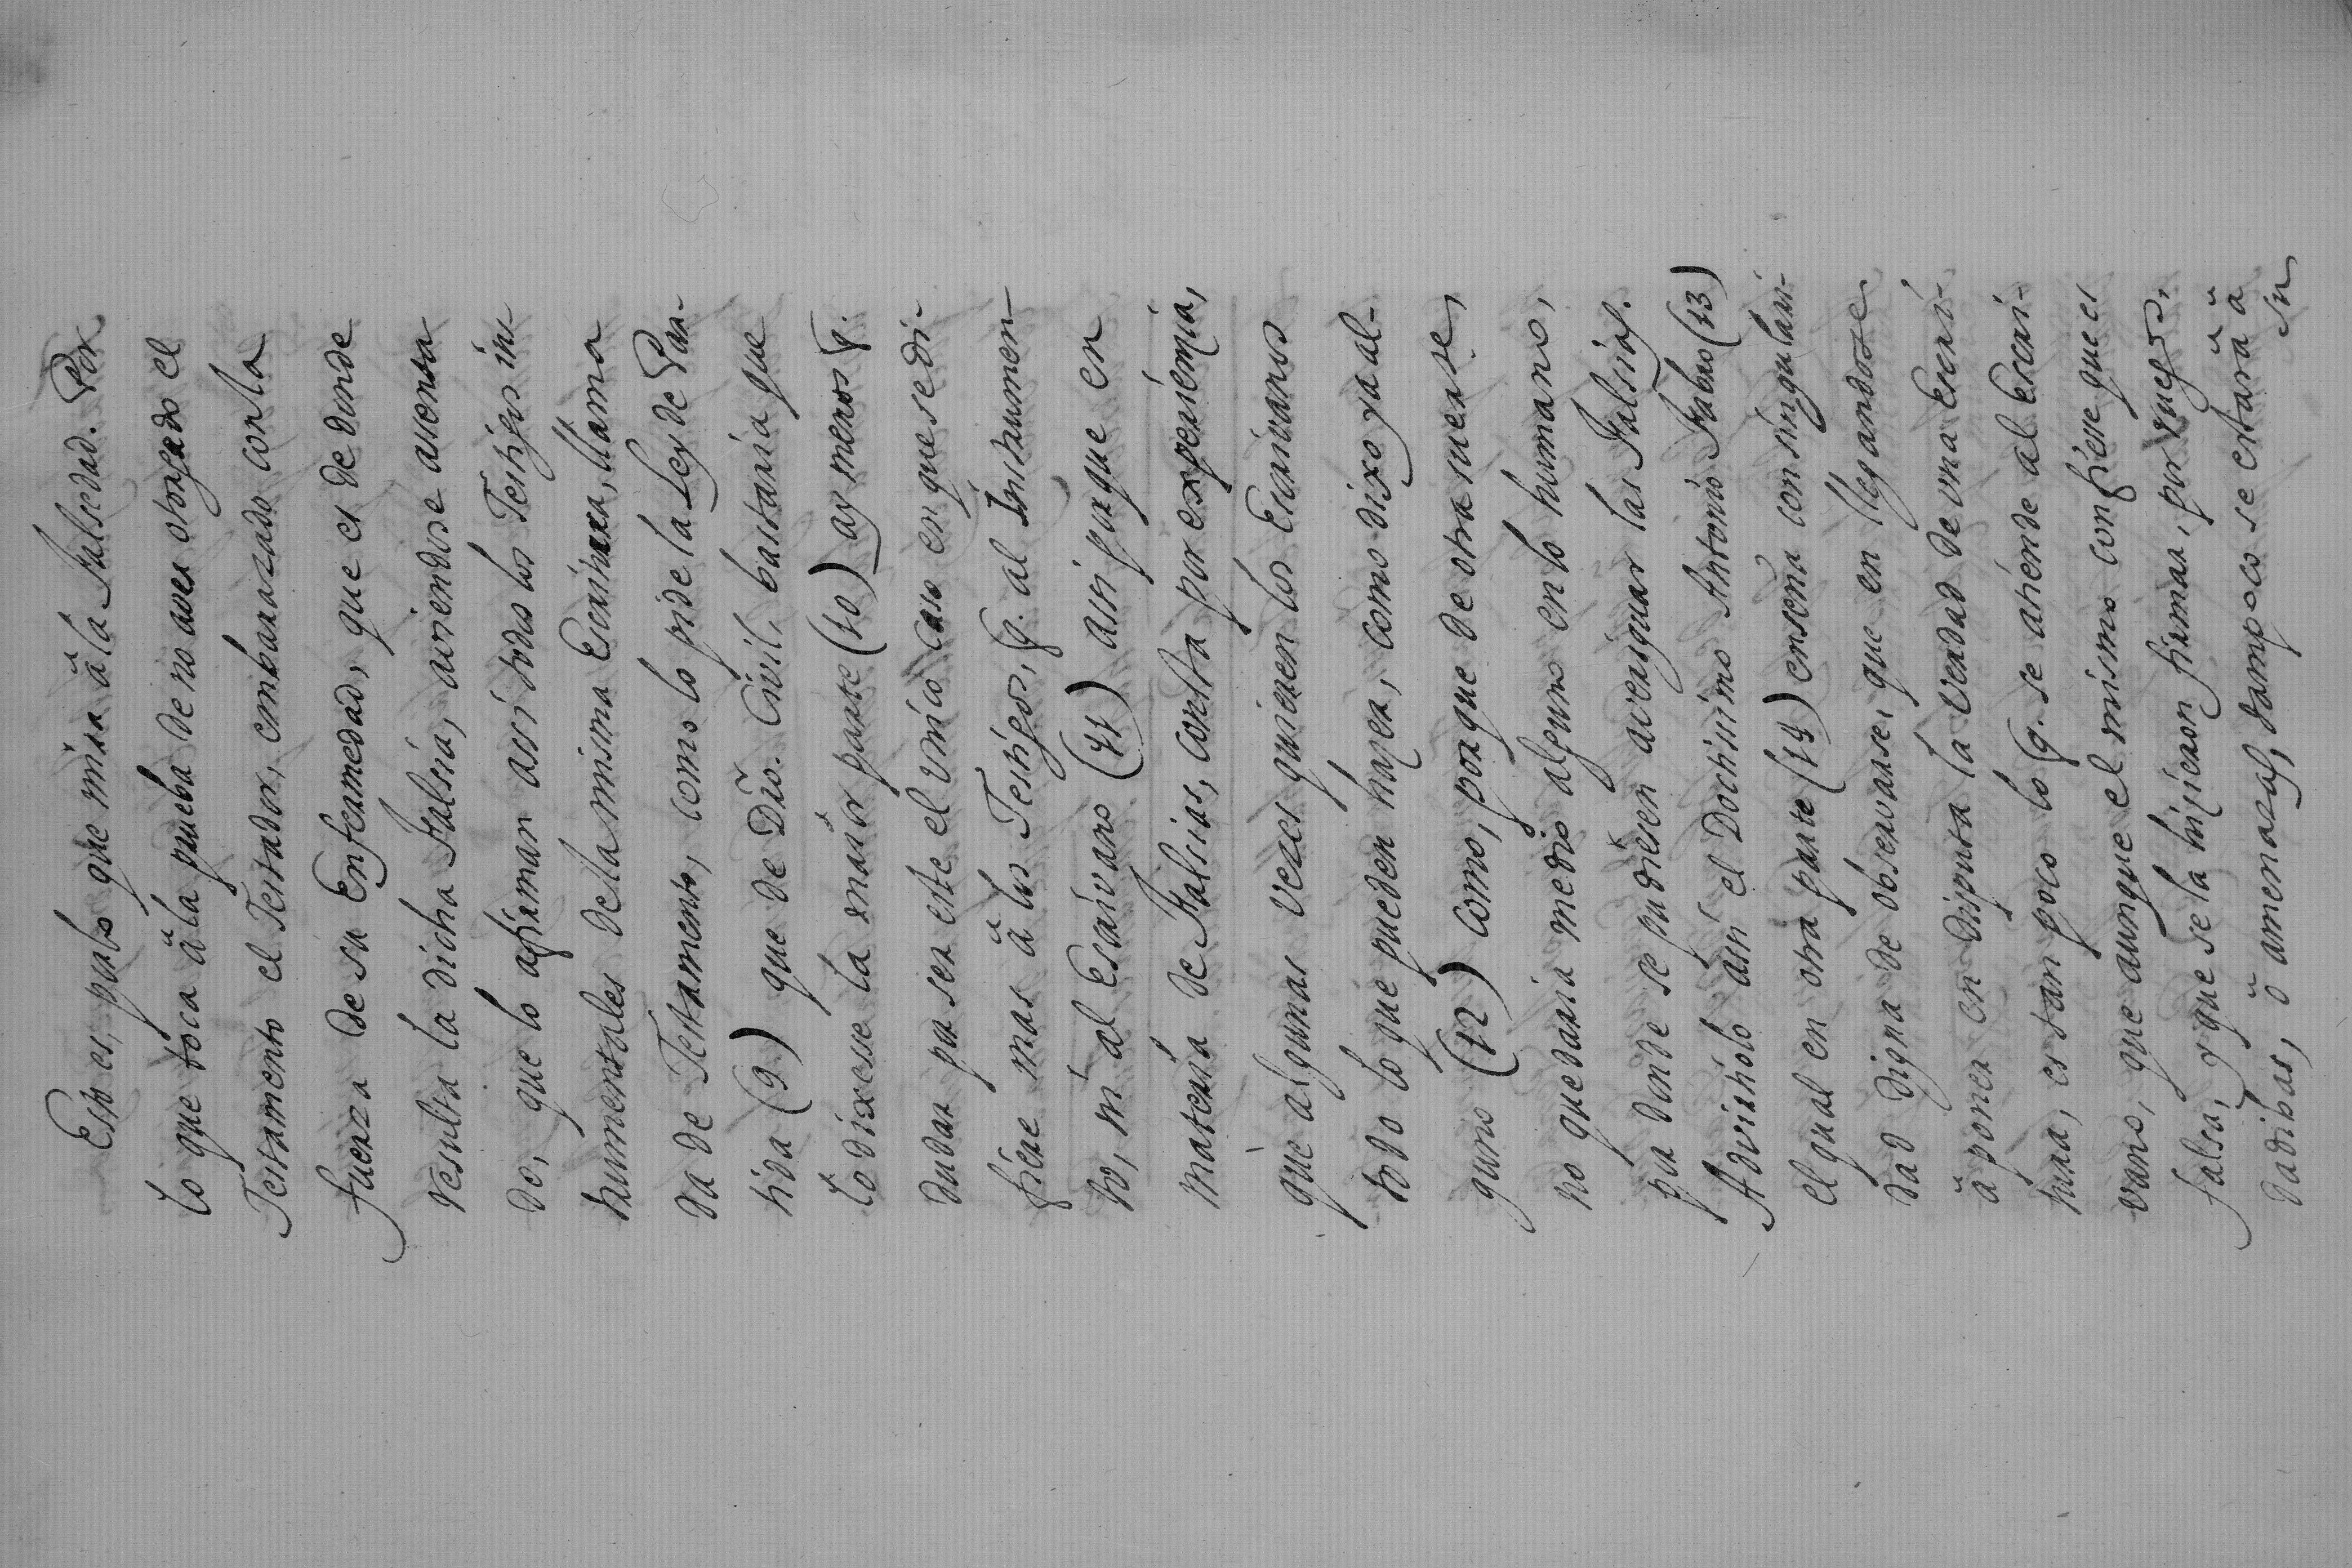 Esto es, por lo que mira â la Falsedad. Por
lo que toca â la prueba de no aver otorgado el
Testamento el Testador, embarazado con la
fuerza de su Enfermedad, que es de donde
resulta la dicha Falsia, aviendose asenta
do, que lo afirman assi todos los Testigos ins
trumentales de la misma Escritura, llama
da de Testamento, como lo pide la Ley de Par-
tida (9) que de Dño. Civil, bastaria que
lo dixesse la maior parte (10) ay menos q.
dudar por ser este el unico caso en que se di-
fiere mas â los Testigos, q. al Instrumen-
to, ni al Escrivano (11) assi porque en
materia de Falsias, consta por experiencia,
que algunas vezes quieren los Escrivanos
todo lo que pueden hazer, como dixo ya al-
guno (12) como, porque de otra suerte,
no quedaria medio alguno en lo humano,
por donde se pudiesen averiguar las Falsias.
Advirtiolo assi el Doctissimo Antonio Fabro (13)
el qual en otra parte (14) enseña con singulari-
dad digna de observarse, que en llegandose
â poner en disputa la verdad de una Escri-
tura, es tan poco lo q. se atiende al Escri-
vano, que aunque el mismo confiese que es
falsa, y que se la hizieron firmar, por ruegos,
dadibas, ô amenazas, tampoco se estarâ â
su